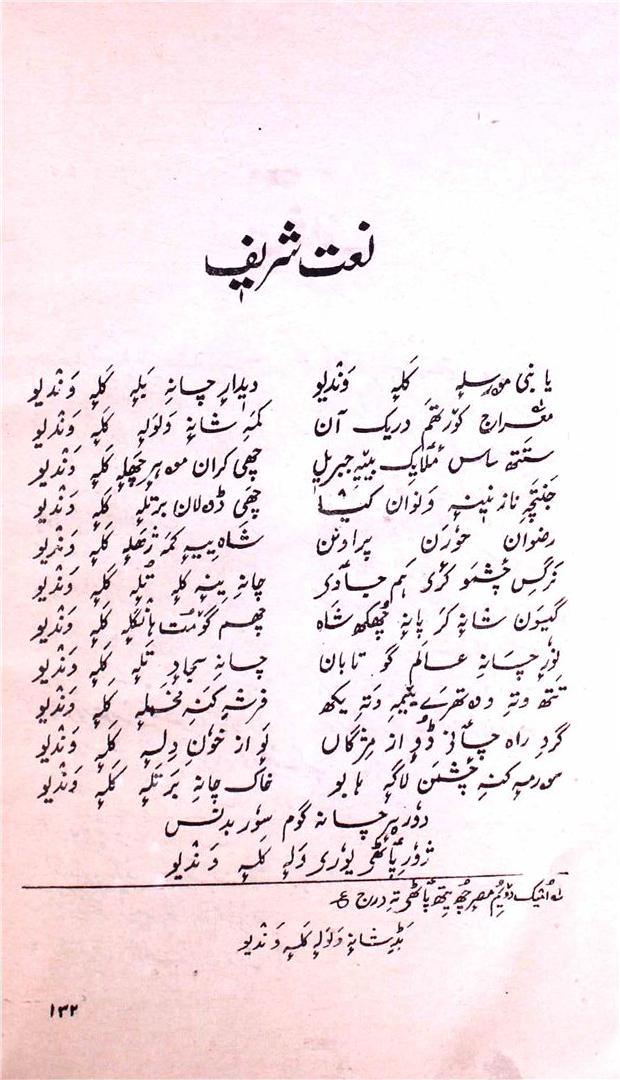 نعت شریف
یا نبی موٗرسلہٕ کَلہٕ وَندیو دیدارِ چانہِ بَلہٕ کَلہٕ وَندیو
معراج کوٚرتھم دریک آن کمہِ شانہٕ وَلولہٕ کَلہٕ وَندیو
ستتھ ساس مَلایک بییہٕ جبریل چھی کران موہرِ چھلہٕ کَلہٕ وَندیو
جنتچہِ نازنینہٕ ولوان کیا چھی ڈولان برتلہٕ کَلہٕ وَندیو
رضوان حوٗرَن پراونن شاہ ییہِ کمہِ ژھلہٕ کَلہٕ وَندیو
نرگسِ چشمو کرٔی ہم جادٔی چانہِ ینہٕ کلہٕ تُلہٕ کَلہٕ وَندیو
گیسوَن شانہٕ کر پانہٕ چھکھ شاہ چھم گوٚمت ہانکلہٕ کَلہٕ وَندیو
نوٗرِ چانہِ عالَم گو تابان چانہِ سجادِ تَلہٕ کَلہٕ وَندیو
تتھ وتہِ وۄتھرے ییمہِ وتہِ یکھ فرشہٕ کنہِ مخملہٕ کَلہٕ وَندیو
گردِ راہ چانی از مژگاں از خونِ دِلہٕ کَلہٕ وَندیو
سورمہٕ کنہِ چشمن لاگہٕ ہا بو خاک چانہِ بَرتَلہٕ کَلہٕ وَندیو
دوٗرِیر چانہ گوم سوٗر بدنس
ژوٗرِ پٲٹھی یوٗری وَلہٕ کَلہٕ وَندیو
دوٚیُم مصرٕ چھُ یتھ پٲٹھی تہِ درج
بَڈِ شانہٕ وَلولہٕ کَلہٕ وَندیو
۱۳۲